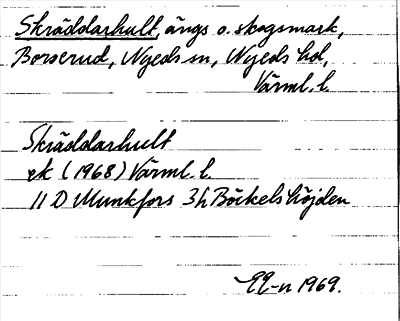 Skräddarhult, ängs o. skogsmark,
Borserud, Nyeds sn, Nyeds hd,
Värml. l.
Skräddarhult
ek (1968) Värml. l.
11 D Munkfors 3 h Böckelshöjden
1969.